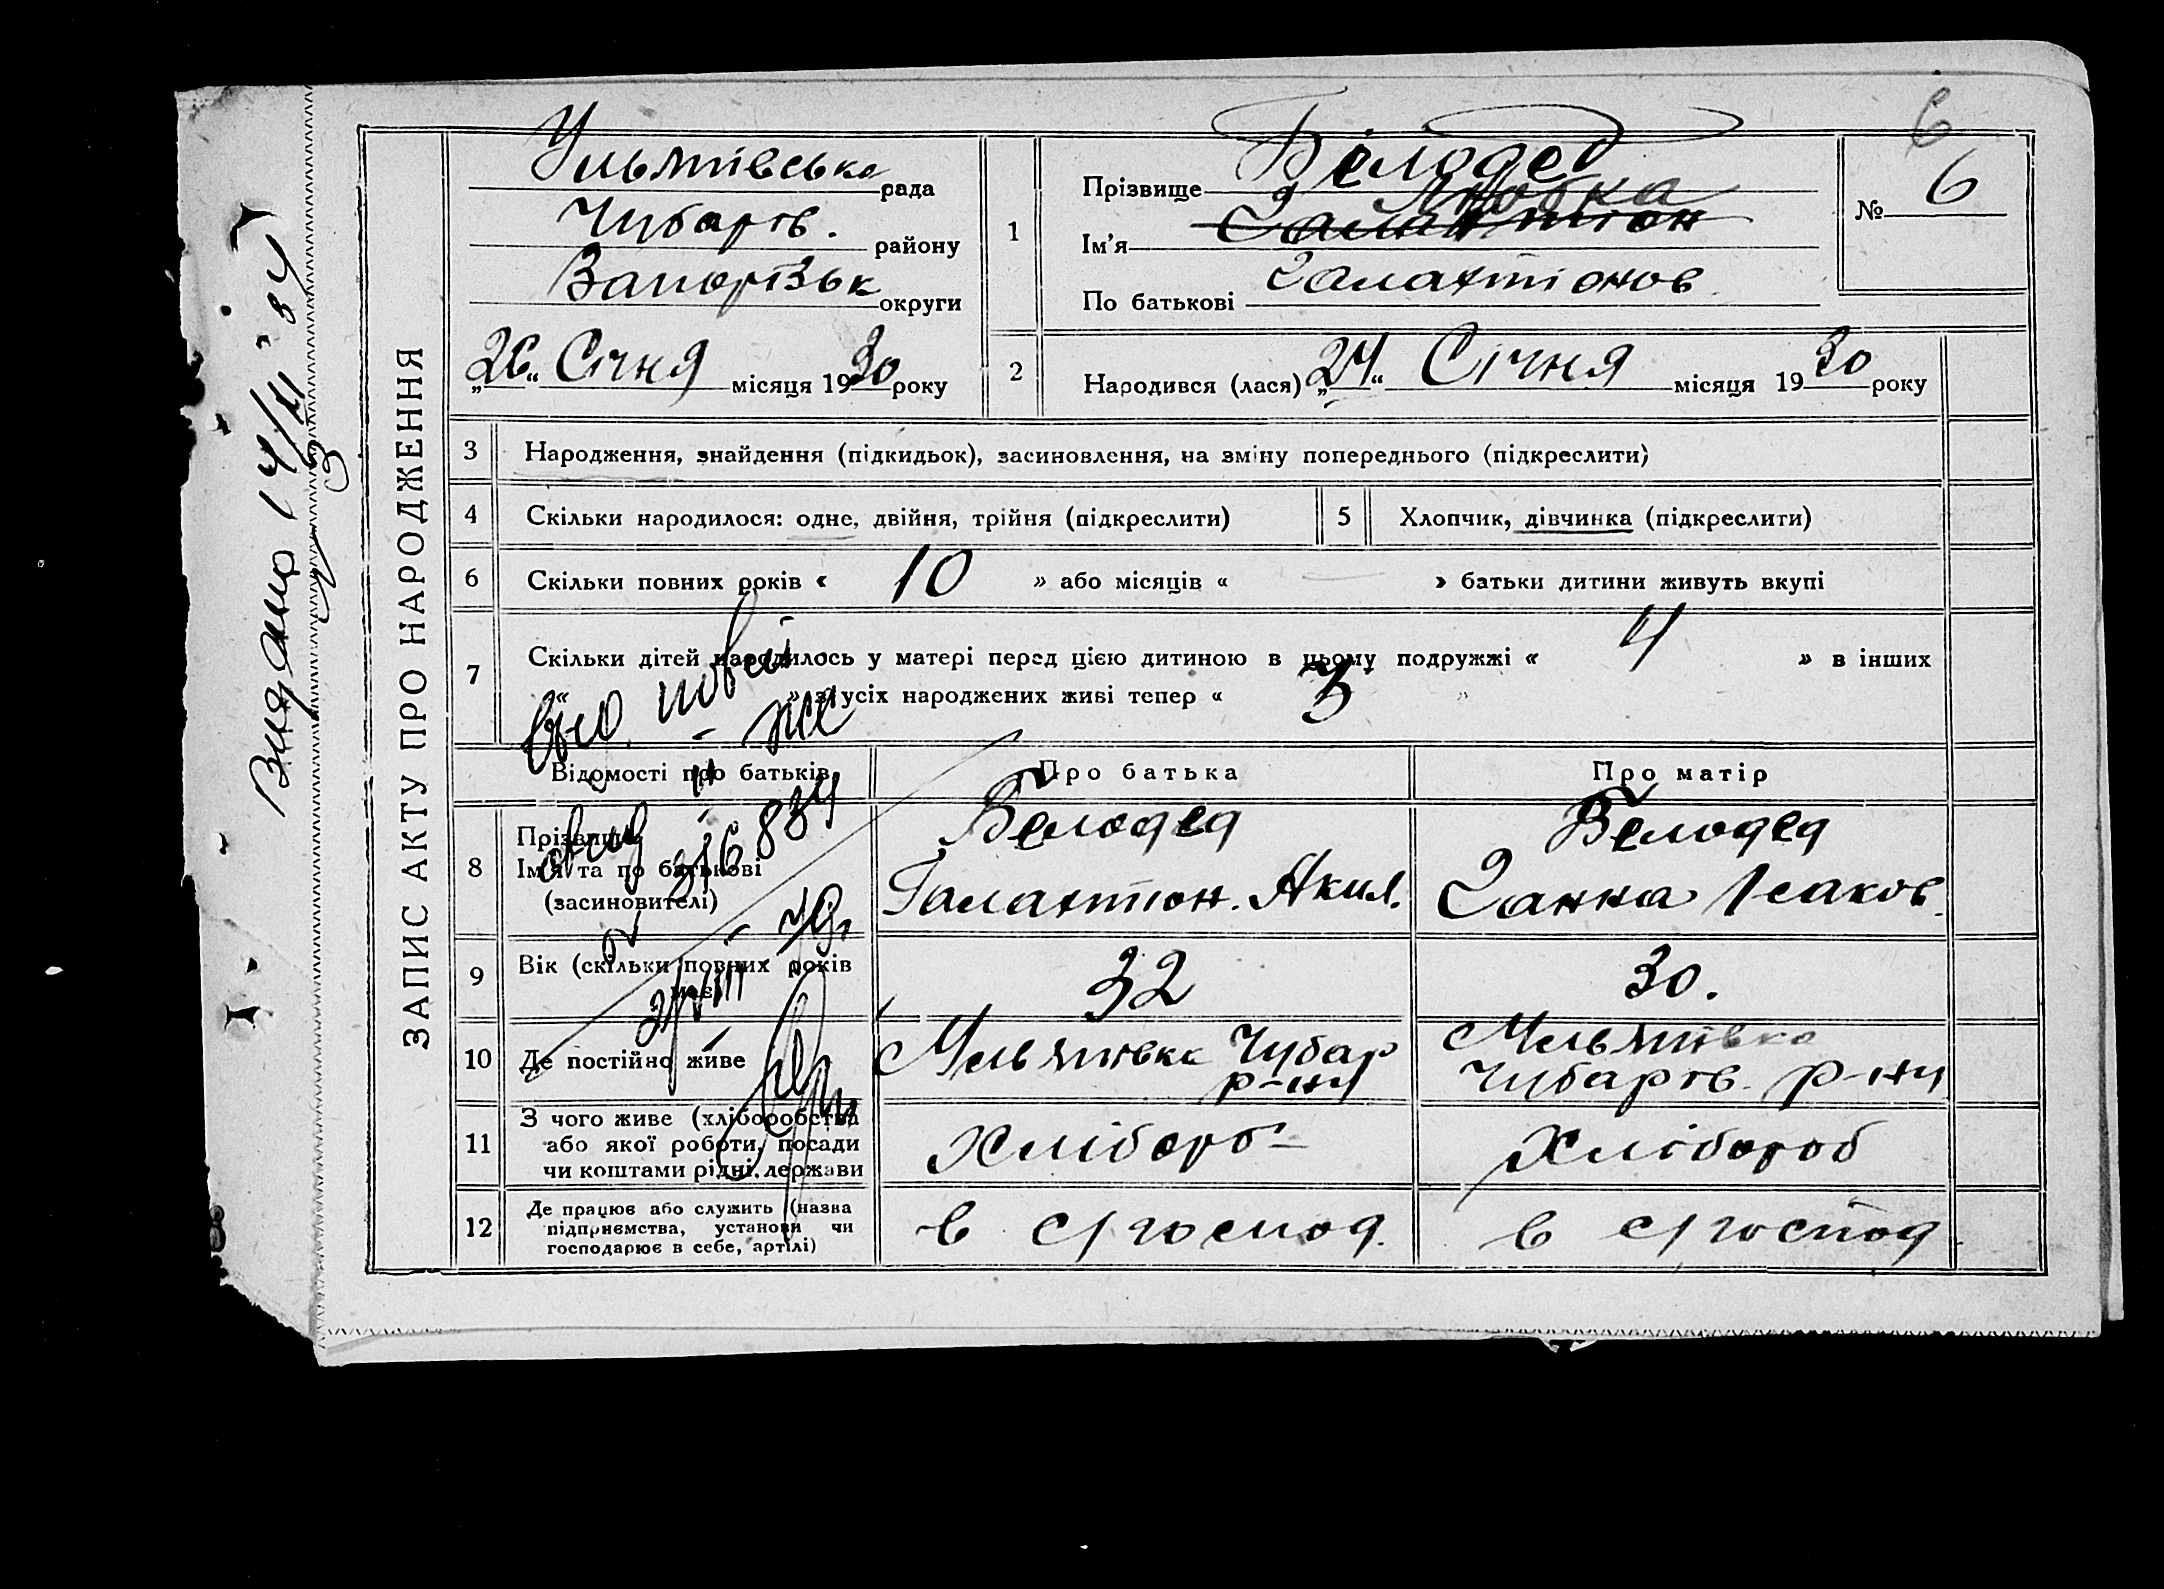 6
ЗАПИС АКТУ ПРО НАРОДЖЕННЯ
Видано
Ульянівська рада
Чубарів. району
Запорізьк округи
„26“ Січня місяця 1930 року
1
Прізвище Білодед
Ім'я Любка
По батькові Галактіонов
№ 6
2
Народився (лася) „24“ Січня місяця 1930 року
3 Народження, знайдення (підкидьок), засиновлення, на зміну попереднього (підкреслити)
4 Скільки народилося: одне, двійня, трійня (підкреслити)
5 Хлопчик, дівчинка (підкреслити)
6 Скільки повних років « 10 » або місяців « — » батьки дитини живуть вкупі
7 Скільки дітей народилось у матері перед цією дитиною в цьому подружжі « 4 » в інших
« » з усіх народжених живі тепер « 3 »
Відомості про батьків
Про батька
Про матір
8 Прізвище
Ім'я та по батькові
(засиновителі)
Белодед
Галактион. Акил.
Белодед
Ганна Ісаков.
9 Вік (скільки повних років має)
32
30.
10 Де постійно живе
Ульянівка Чубар
р-ну
Ульянівка
Чубарів. р-ну
11 З чого живе (хліборобства
або якої роботи, посади
чи коштами рідні, держави
Хлібороб
Хлібороб
12 Де працює або служить (назва
підприємства, установи чи
господарює в себе, артілі)
в с/господ.
в с/господ.